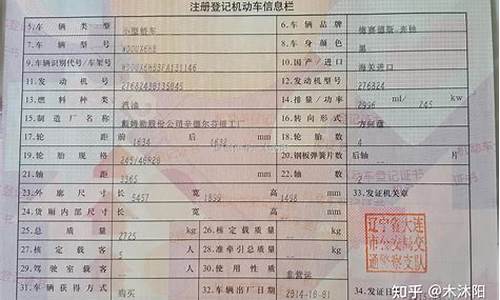 注册登记机动车信息栏
5.车辆类型 小型轿车 6.车辆品牌 梅赛德斯-奔驰
7.车辆型号 8.车身颜色 黑
9.车辆识别代号/车架号 10.国产/进口 海关进口
11.发动机号 12.发动机型号 276824
13.燃料种类 汽油 14.排量/功率 2996 ml/ 245 kw
15.制造厂名称 戴姆勒股份公司辛德尔芬根工厂 16.转向形式 方向盘
17.轮距 前 1634 后 mm 18.轮胎数 4
19.轮胎规格 20.钢板弹簧片数 后轴 片
21.轴距 3365 mm 22.轴数 2
23.外廓尺寸 长 5457 宽 1899 高 1498 mm 33.发证机关章
24.货厢内部尺寸 长 宽 高 mm
25.总质量 2725 kg 26.核定载质量 kg 辽宁省大连
27.核定载客 5 人 28.准牵引总质量 kg 市公安局交
29.驾驶室载客 人 30.使用性质 非营运 通警察支队
31.车辆获得方式 购买 32.车辆出厂日期 34.发证日
知乎 @木沐阳